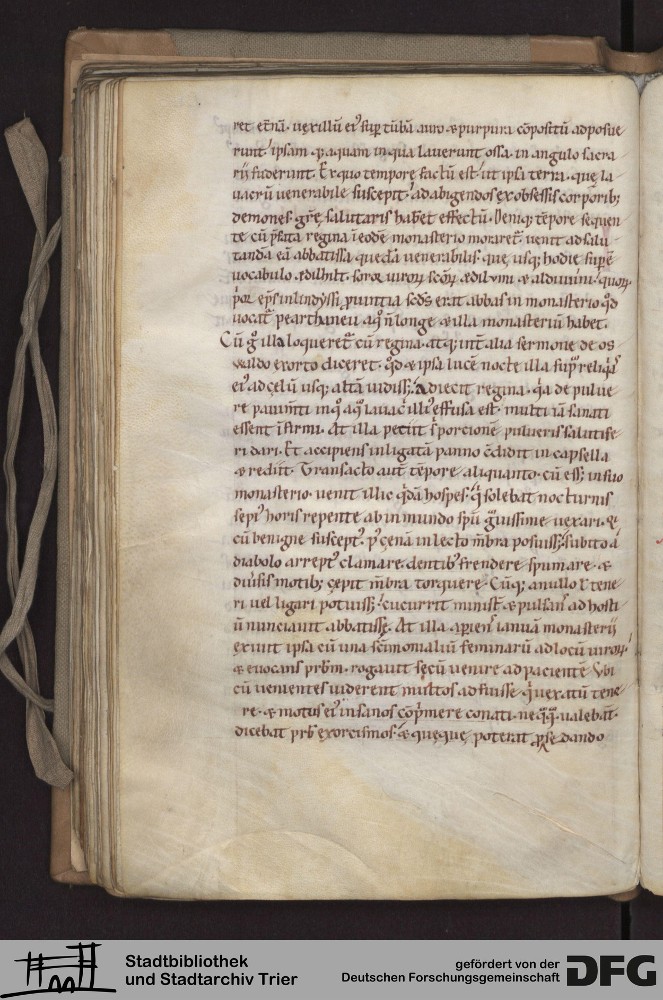 ret et̄nā· uexillū ei᾽ sup̱ tūbā auro ⁊ purpura cōpositū adposue
runt· ipsam q; aquam in qua lauerunt ossa· in angulo sacra
rii fuderunt. Ex quo tempore factū est· ut ipsa terra· que la
uacrū uenerabile suscepit· ad abigendos ex obsessis corporib;
demones· gr̄e salutaris hab&̄ effectū. Deniq; tēpore sequen
te cū p̄fata regina ī eodē monasterio morar&̄ uenit ad salu
tandā eā abbatissa quedā uenerabilis· que usq; hodie sup̱ē
uocabulo ædilhilt· soror uirorꝝ scōrꝝ ædiluini ⁊ alduuini· quorꝝ
p̄or ep̄s in lindyssi puintia· sc̄ds erat abbas in monasterio qd̄
uocat̄ peartaneu· a q̊ ñ longe ⁊ illa monasteriū habet.
Cū g̊ illa loqueret̄ cū regina· atq; int̄ alia sermone de os
waldo exorto dicer&· qd̄ ⁊ ipsa lucē nocte illa sup̱ reliq̄as
ei᾽ ad celū usq; altā uidiss;· Adiecit regina· q̊a de pulue
re pauim̄ti in q̊ aq̄ lauac̄ illi᾽ effusa est· multi iā sanati
essent īfirmi. At illa petiit s̄ porcionē pulueris salutife
ri dari. Et accipiens inligatā panno c̄didit in capsella
⁊ rediit. Transacto aut̄ tēpore aliquanto· cū ess; in suo
monasterio· uenit illic q̊dā hospes· q̊ solebat nocturnis
sepi᾽ horis repente ab inmundo sp̄u g̊uissime uexari· q̊
cū benigne suscept᾽· p᾽ cenā in lecto m̄bra posuiss;· subito á
diabolo arrept᾽ clamare· dentib᾽ frendere· spumare· ⁊
diu̾sis motib; cepit m̄bra torquere· Cūq; a nullo ł tene
ri uel ligari potuiss;· cucurrit minist̄ ⁊ pulsan᾽ ad hosti
ū nunciauit abbatisse. At illa apien᾽ ianuā monasterii
exiuit ipsa cū una sc̄imonialiū feminarū ad locū uirorꝝ·
⁊ euocans prb̄m· rogauit secū uenire ad pacientē. Vbi
cū uenientes uiderent multos adfuisse q̊ uexatū tene
re· ⁊ motus ei᾽ insanos cōp̱mere conati· neq̄q̄ ualebāt·
dicebat prb̄ exorcismos· ⁊ queque poterat p̱ se dando
Stadtbibliothek
und Stadtarchiv Trier
gefördert von der
Deutschen Forschungsgemeinschaft
DFG